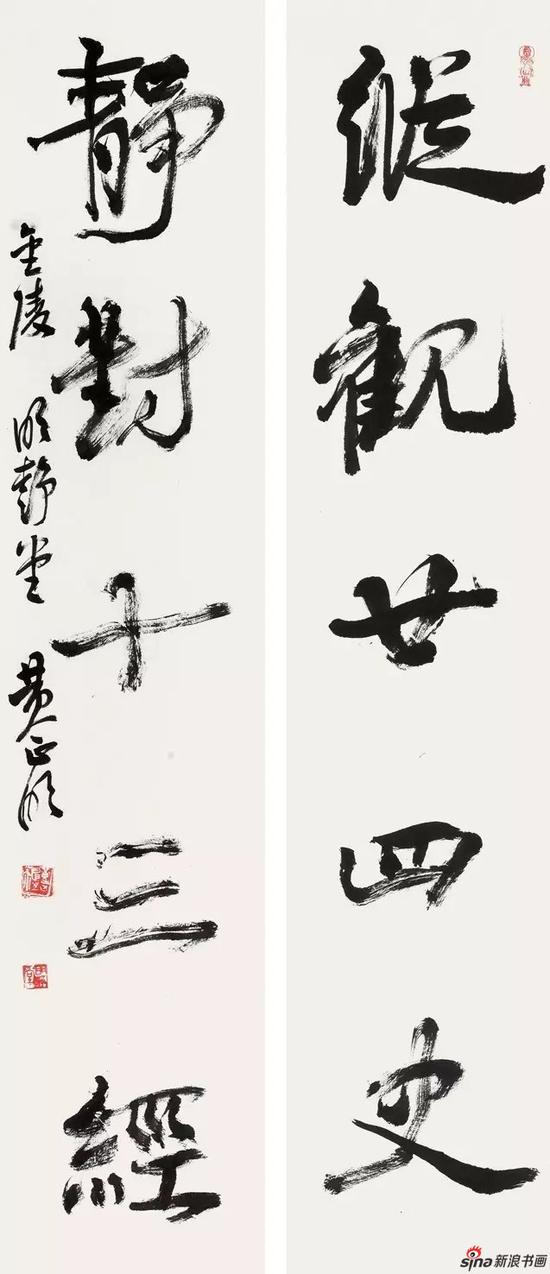 縱觀廿四史
靜對十三經
金陵 明靜堂 黄正明
sina新浪书画